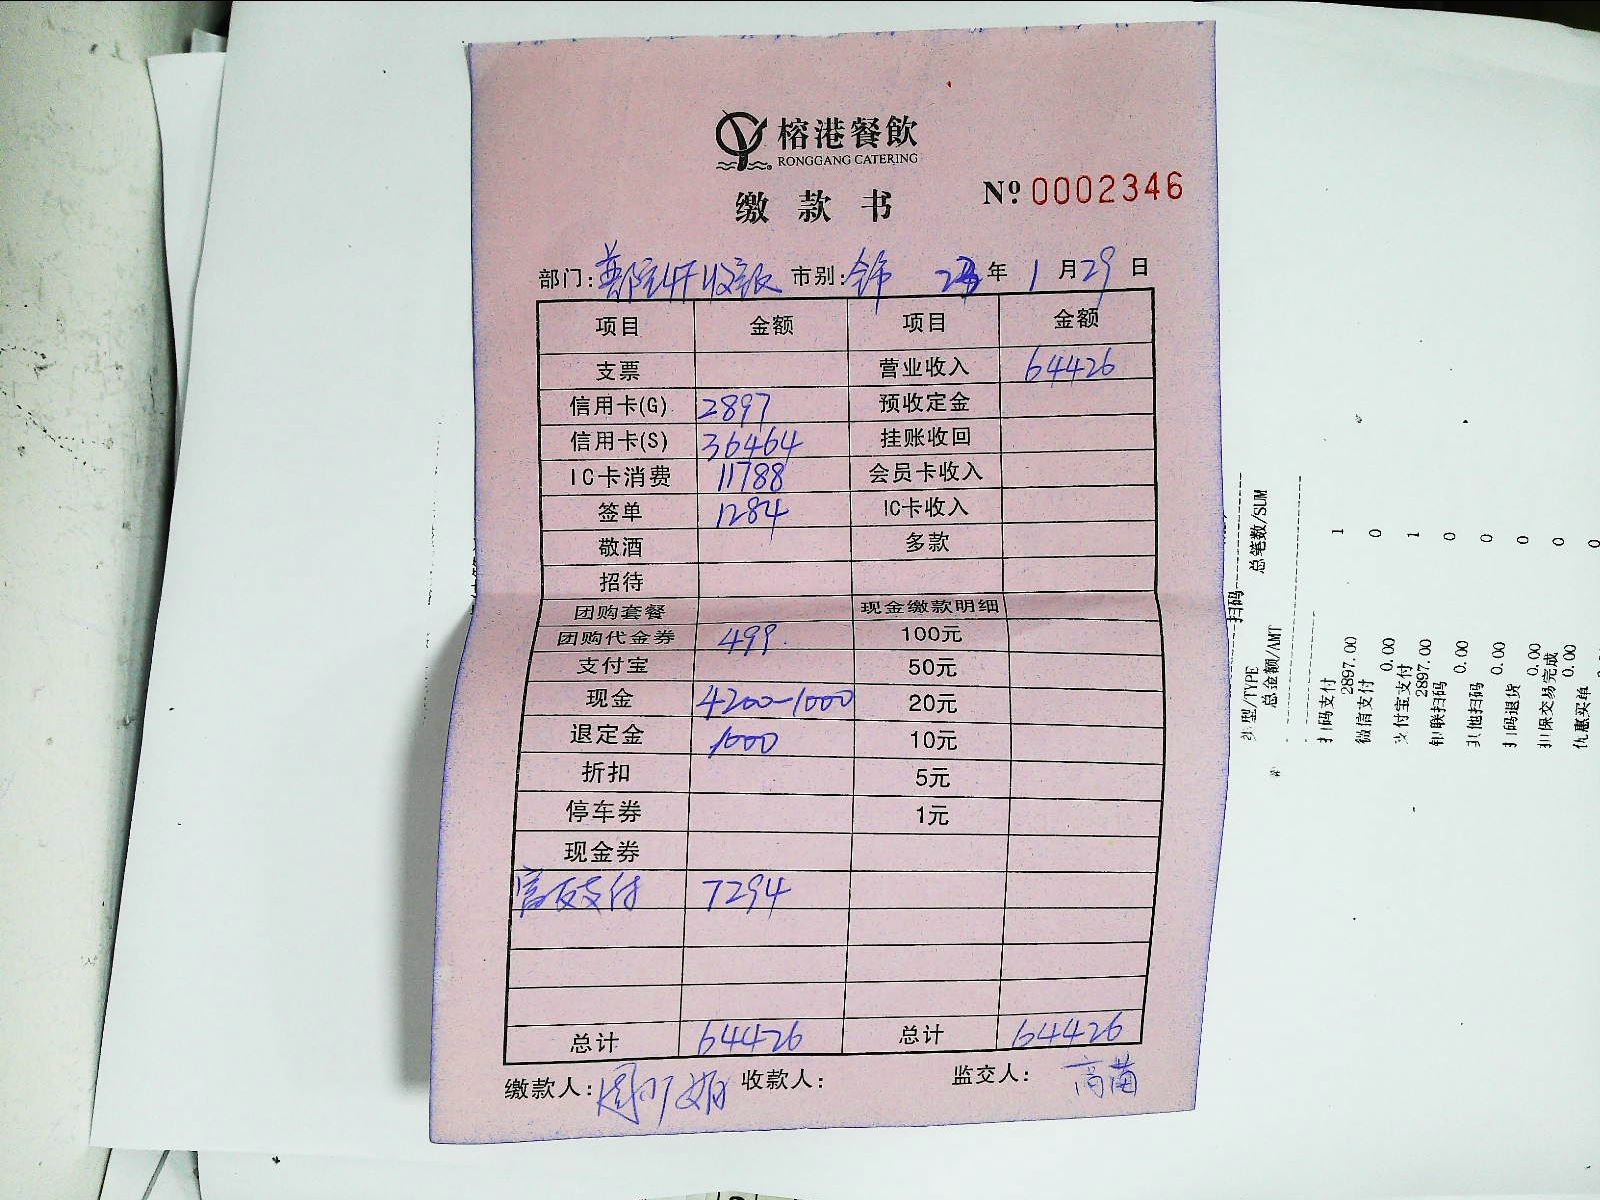 榕港餐飲
RONGGANG CATERING
缴款书
№ 0002346
部门: 收银 市别: 23年1月29日
项目 金额 项目 金额
支票 营业收入 64426
信用卡(G) 2897 预收定金
信用卡(S) 36464 挂账收回
IC卡消费 11788 会员卡收入
签单 1284 IC卡收入
敬酒 多款
招待
团购套餐 现金缴款明细
团购代金券 499 100元
支付宝 50元
现金 4200-1000 20元
退定金 1000 10元
折扣 5元
停车券 1元
现金券
支付 7294
总计 64426 总计 64426
缴款人: 周 娟 收款人: 监交人: 高苗
扫码
类型/TYPE 总笔数/SUM
总金额/AMT
扫码支付 1
2897.00
微信支付 0
0.00
支付宝支付 1
2897.00
银联扫码 0
0.00
其他扫码 0
0.00
扫码退货 0
0.00
担保交易完成 0
0.00
优惠买单 0